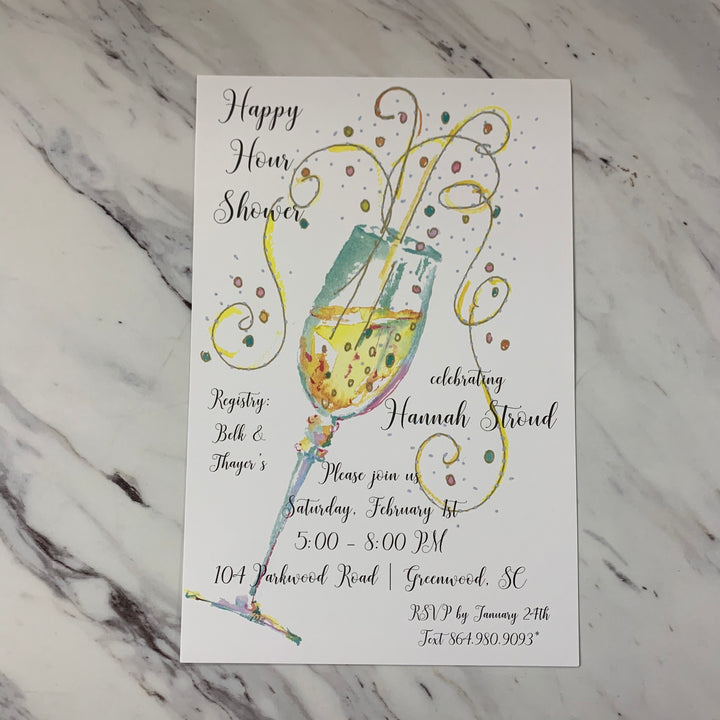 Happy
Hour
Shower
celebrating
Hannah Stroud
Registry:
Belk &
Thayer's
Please join us
Saturday, February 1st
5:00 - 8:00 PM
104 Parkwood Road | Greenwood, SC
RSVP by January 24th
Text 864.980.9093*